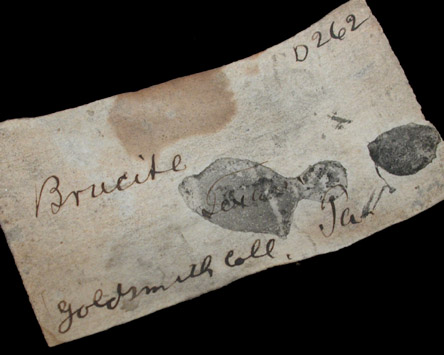 D262
Brucite
Pa
Goldsmith Coll.